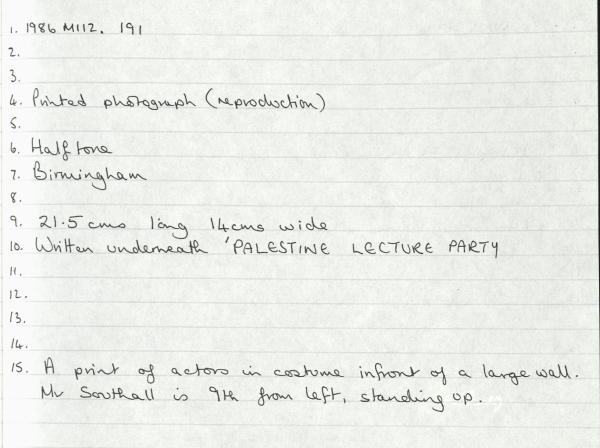 1. 1986 M112. 191
2.
3.
4. Printed photograph (reproduction)
5.
6. Halftone
7. Birmingham
8.
9. 21.5 cms long 14cms wide
10. Written underneath 'PALESTINE LECTURE PARTY
11.
12.
13.
14.
15. A print of actors in costume infront of a large wall.
Mr Southall is 9th from left, standing up.